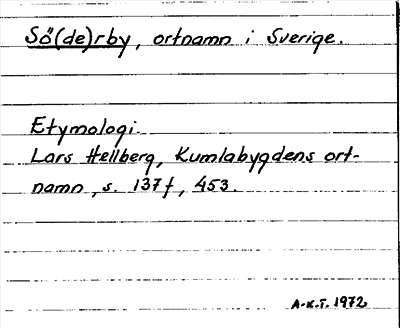 Sö(de)rby, ortnamn i Sverige.
Etymologi
Lars Hellberg, Kumlabygdens ort-
namn, s. 137f, 453.
A-K.T. 1972